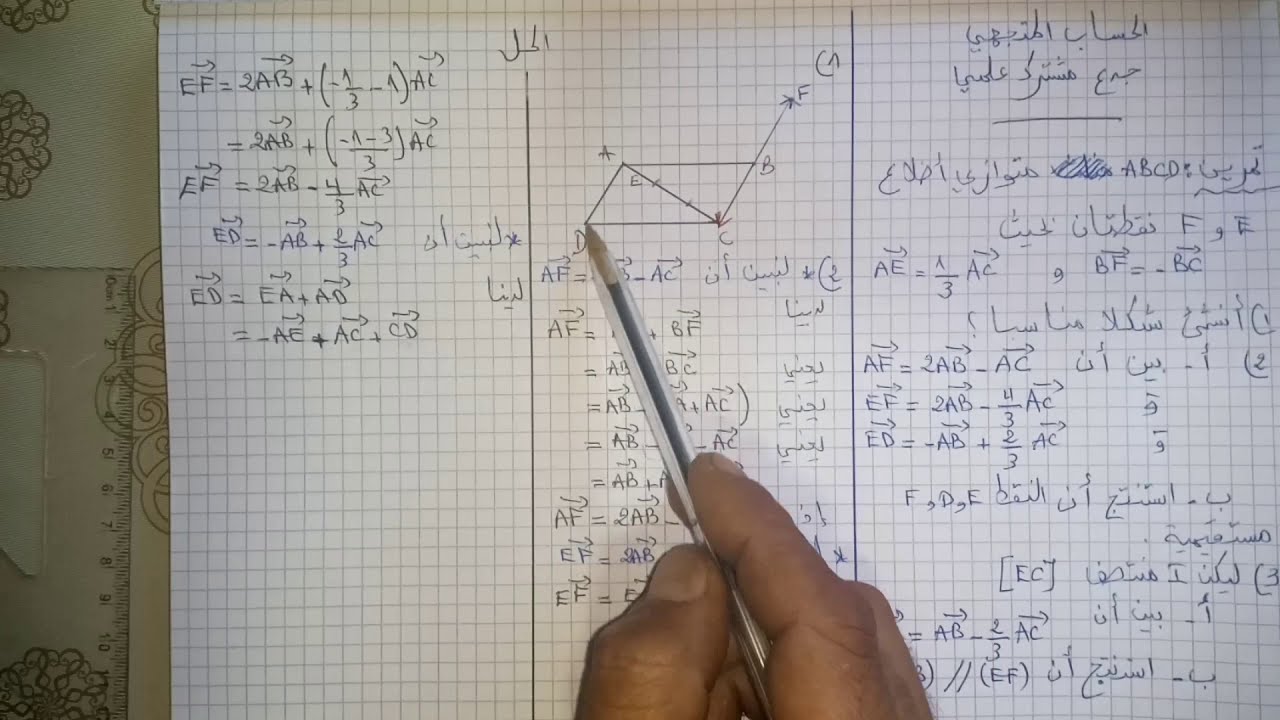 الحساب المتجهي
جدع مشترك علمي
تمرين: ABCD متوازي أضلاع
E و F نقطتان بحيث
AE = 1/3 AC و BF = -BC
1) أنشئ شكلا مناسبا؟
2) أ - بين أن AF = 2AB - AC
و EF = 2AB - 4/3 AC
و ED = -AB + 2/3 AC
ب - استنتج أن النقط F, D, E
مستقيمية.
3) ليكن I منتصف [EC]
أ - بين أن
= AB - 2/3 AC
ب - استنتج أن // (EF)
الحل
1)
F
A
B
E
D
C
2) * لنبين أن AF = - AC
لدينا
AF = + BF
يعني = AB BC
يعني = AB - + AC)
يعني = AB - - AC
= AB +
إذن AF = 2AB -
* EF = 2AB
EF =
EF = 2AB + (-1/3 - 1) AC
= 2AB + (-1-3/3) AC
EF = 2AB - 4/3 AC
* لنبين أن ED = -AB + 2/3 AC
لدينا ED = EA + AD
= -AE + AC + CD
Cm 1
2
3
4
5
6
7
8
9
10